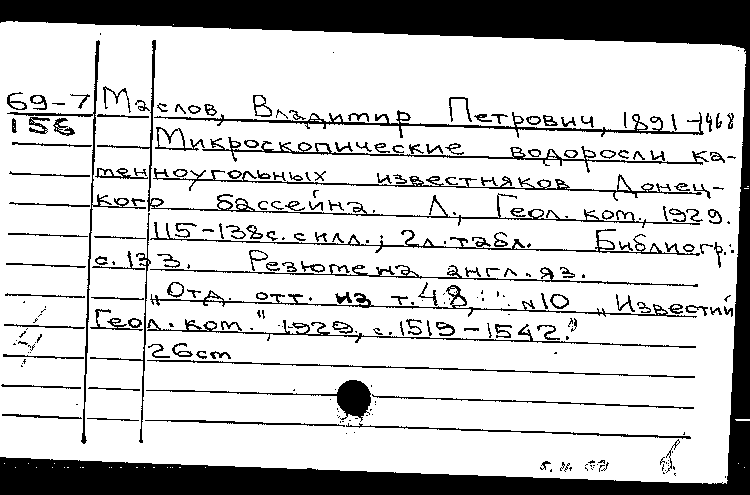 69-7 Маслов, Владимир Петрович, 1891-1968
156 Микроскопические водоросли ка-
менноугольных известняков Донец-
кого бассейна. Л., Геол. ком., 1929.
115-138с. с илл.; 2л. табл. Библиогр.:
с. 133. Резюме на англ. яз.
"Отд. отт. из т. 48, №10 "Известий
Геол. ком.", 1929, с. 1519-1542."
26 cm